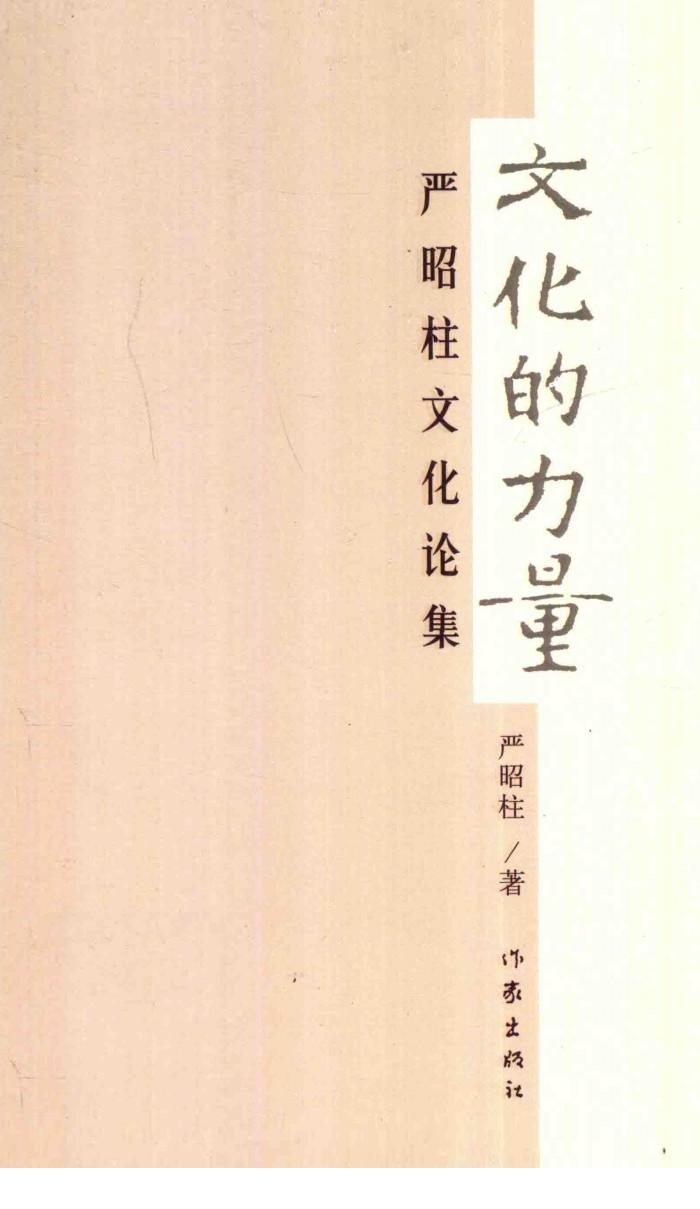 文化的力量
严昭柱文化论集
严昭柱/著
作家出版社